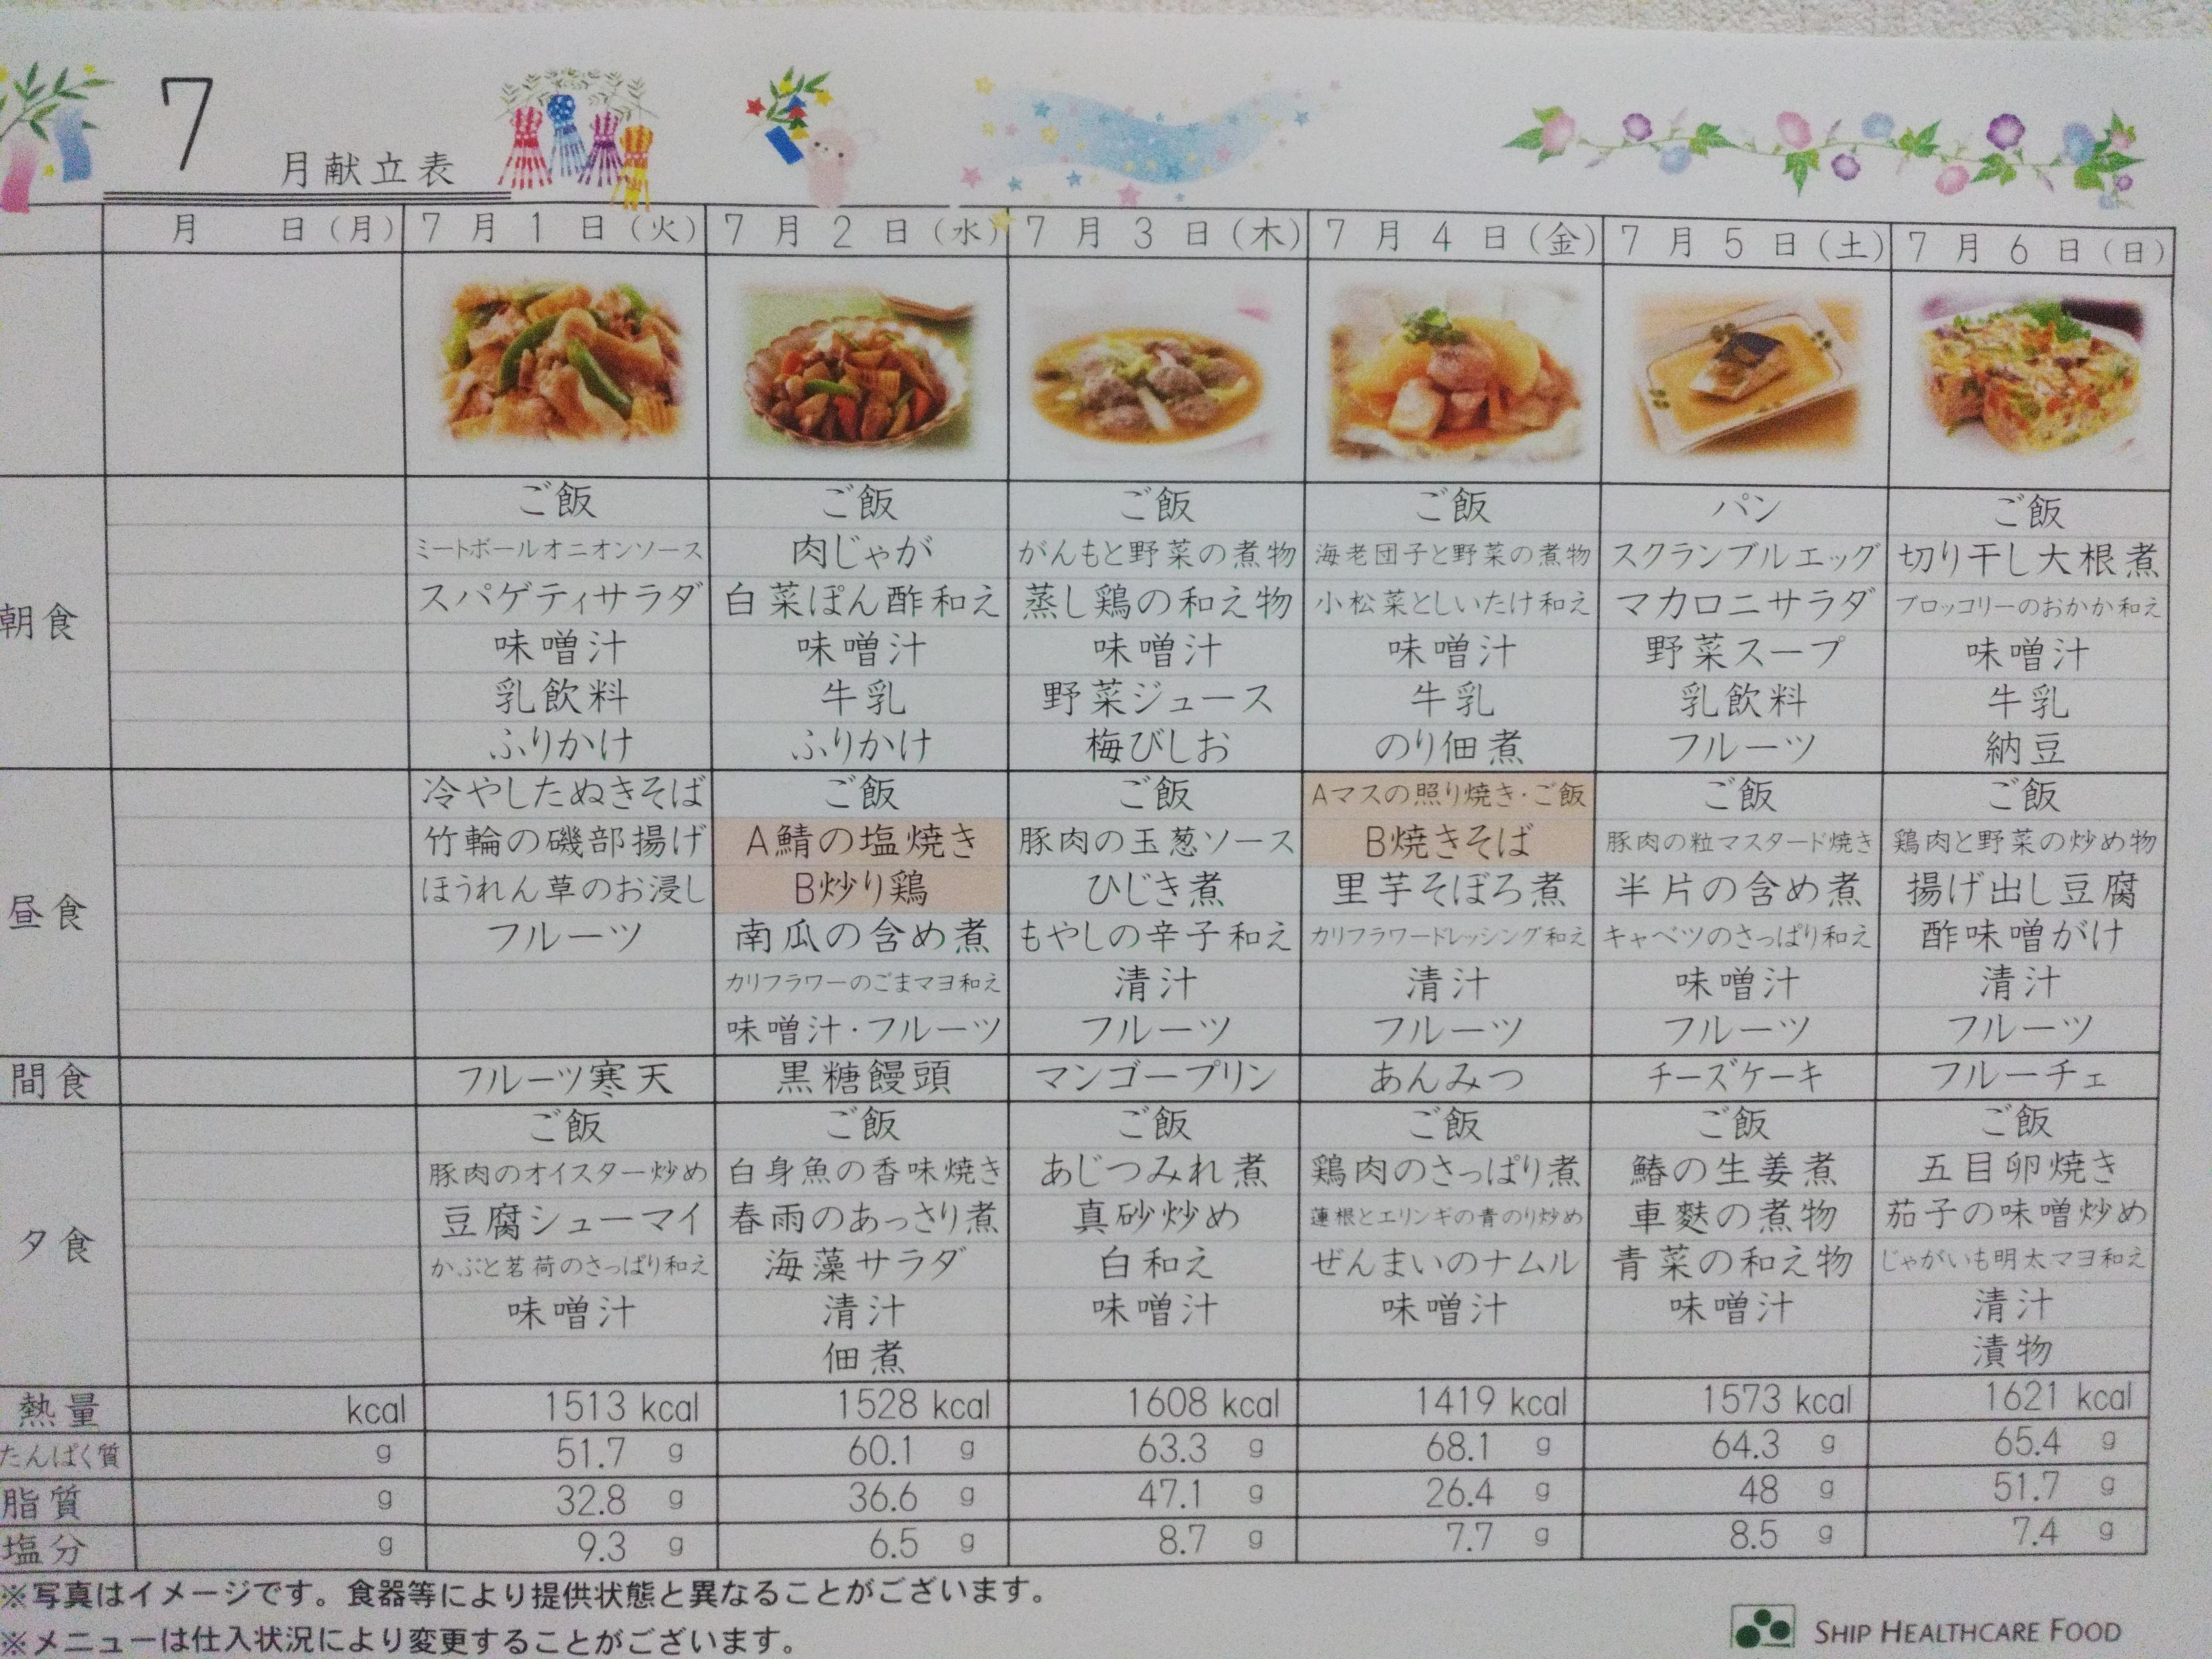 7 月献立表
月 日(月) 7月1日(火) 7月2日(水) 7月3日(木) 7月4日(金) 7月5日(土) 7月6日(日)
朝食
ご飯 ご飯 ご飯 ご飯 パン ご飯
ミートボールオニオンソース 肉じゃが がんもと野菜の煮物 海老団子と野菜の煮物 スクランブルエッグ 切り干し大根煮
スパゲティサラダ 白菜ぽん酢和え 蒸し鶏の和え物 小松菜としいたけ和え マカロニサラダ ブロッコリーのおかか和え
味噌汁 味噌汁 味噌汁 味噌汁 野菜スープ 味噌汁
乳飲料 牛乳 野菜ジュース 牛乳 乳飲料 牛乳
ふりかけ ふりかけ 梅びしお のり佃煮 フルーツ 納豆
昼食
冷やしたぬきそば ご飯 ご飯 Aマスの照り焼き・ご飯 ご飯 ご飯
竹輪の磯部揚げ A鯖の塩焼き 豚肉の玉葱ソース B焼きそば 豚肉の粒マスタード焼き 鶏肉と野菜の炒め物
ほうれん草のお浸し B炒り鶏 ひじき煮 里芋そぼろ煮 半片の含め煮 揚げ出し豆腐
フルーツ 南瓜の含め煮 もやしの辛子和え カリフラワードレッシング和え キャベツのさっぱり和え 酢味噌がけ
カリフラワーのごまマヨ和え 清汁 清汁 味噌汁 清汁
味噌汁・フルーツ フルーツ フルーツ フルーツ フルーツ
間食 フルーツ寒天 黒糖饅頭 マンゴープリン あんみつ チーズケーキ フルーチェ
夕食
ご飯 ご飯 ご飯 ご飯 ご飯 ご飯
豚肉のオイスター炒め 白身魚の香味焼き あじつみれ煮 鶏肉のさっぱり煮 鰆の生姜煮 五目卵焼き
豆腐シューマイ 春雨のあっさり煮 真砂炒め 蓮根とエリンギの青のり炒め 車麩の煮物 茄子の味噌炒め
かぶと茗荷のさっぱり和え 海藻サラダ 白和え ぜんまいのナムル 青菜の和え物 じゃがいも明太マヨ和え
味噌汁 清汁 味噌汁 味噌汁 味噌汁 清汁
佃煮 漬物
熱量 kcal 1513 kcal 1528 kcal 1608 kcal 1419 kcal 1573 kcal 1621 kcal
たんぱく質 g 51.7 g 60.1 g 63.3 g 68.1 g 64.3 g 65.4 g
脂質 g 32.8 g 36.6 g 47.1 g 26.4 g 48 g 51.7 g
塩分 g 9.3 g 6.5 g 8.7 g 7.7 g 8.5 g 7.4 g
※写真はイメージです。食器等により提供状態と異なることがございます。
※メニューは仕入状況により変更することがございます。
SHIP HEALTHCARE FOOD